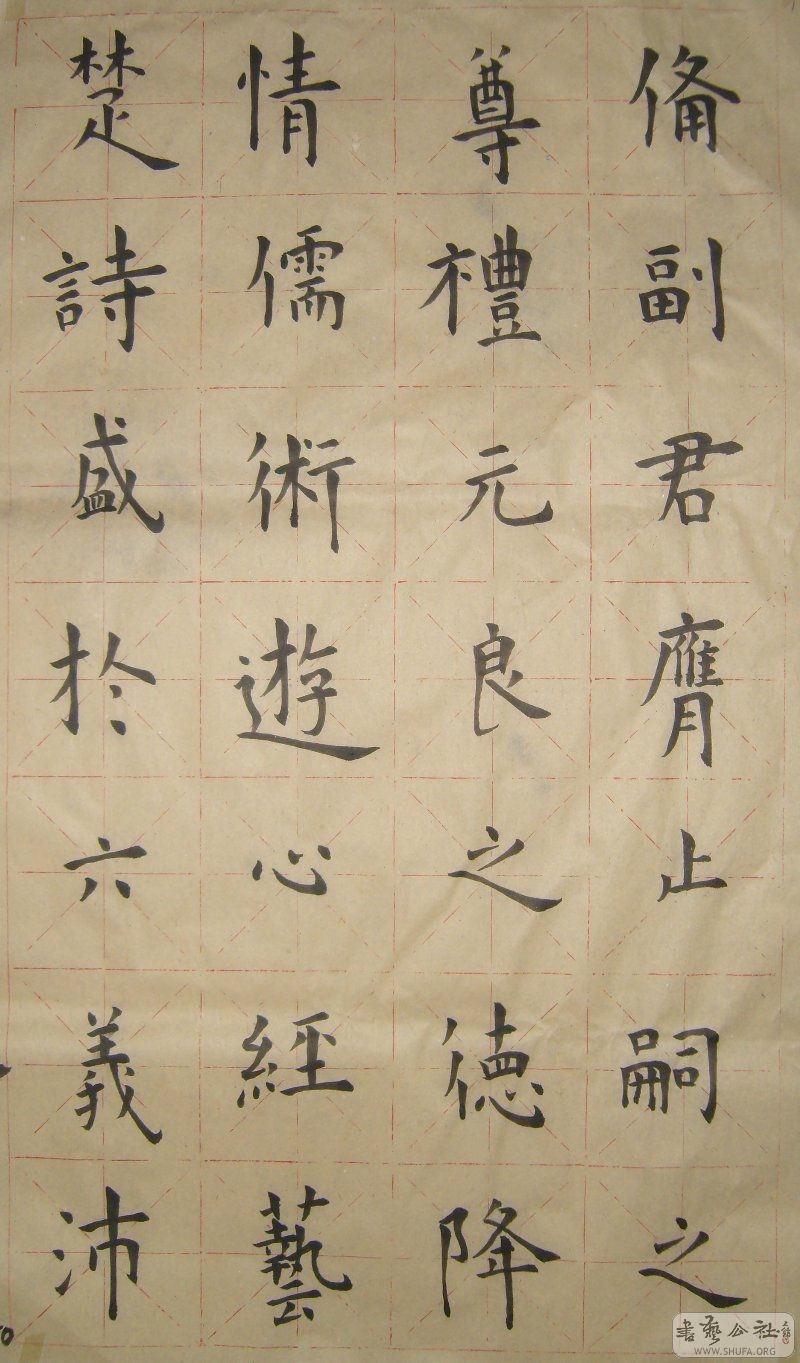 俻副君膺止嗣之
尊禮元良之德降
情儒術遊心經藝
楚詩盛於六義沛
书艺公社
WWW.SHUFA.ORG